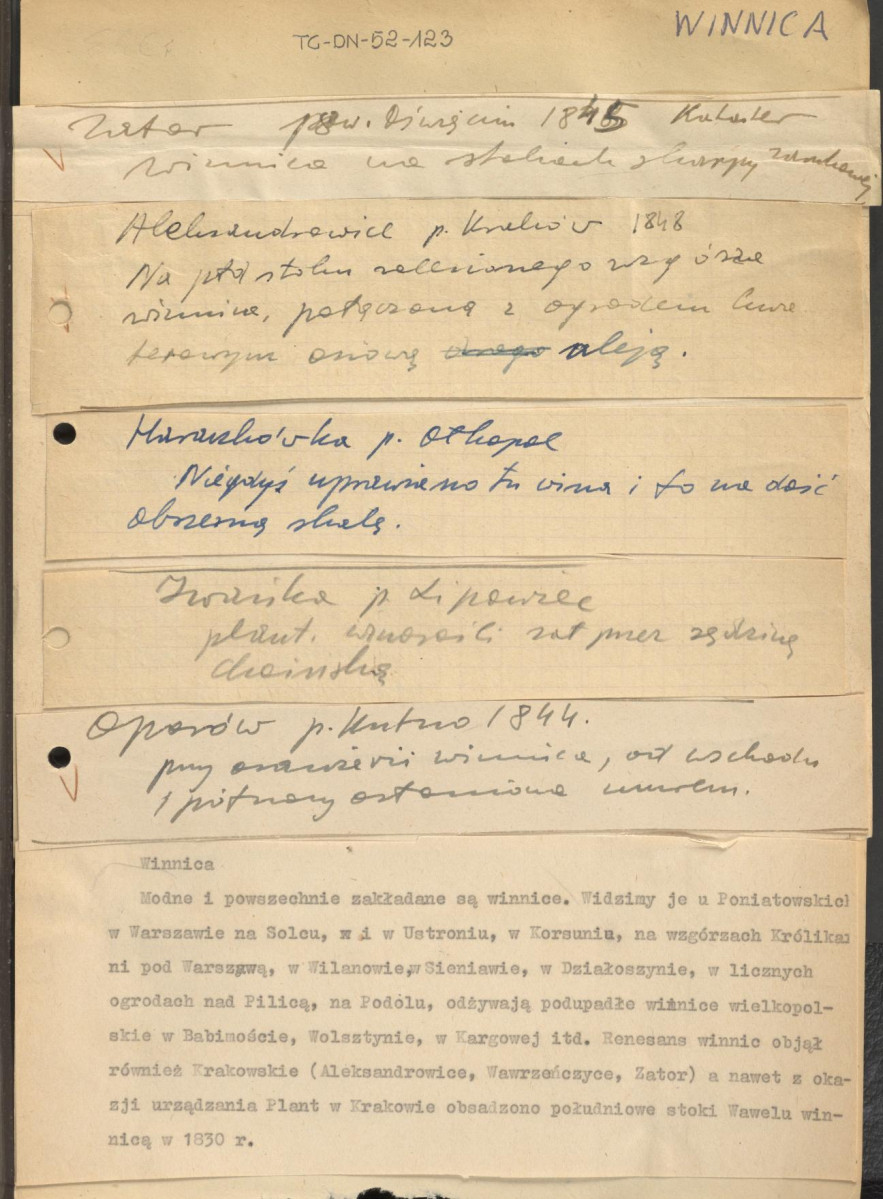 WINNICA
TG-DN-52-123
Zator pow. Oświęcim 1845 Kataster
winnica na stokach skarpy zamkowej
Aleksandrowice p. Kraków 1848
Na płd stoku zalesionego wzgórza
winnica, połączona z ogrodem kwa
terowym osiową aleją.
Haraszkówka p. Olhopol
Niegdyś uprawiano tu wina i to na dość
obszerną skalę.
Iwańka p. Lipowiec
plant. winorośli zał przez sędzinę
Oporów p. Kutno 1844.
przy oranżerii winnica, od wschodu
i północy osłoniona murem.
Winnica
Modne i powszechnie zakładane są winnice. Widzimy je u Poniatowskich
w Warszawie na Solcu, x i w Ustroniu, w Korsuniu, na wzgórzach Królikar
ni pod Warszawą, w Wilanowie,w Sieniawie, w Działoszynie, w licznych
ogrodach nad Pilicą, na Podolu, odżywają podupadłe winnice wielkopol-
skie w Babimoście, Wolsztynie, w Kargowej itd. Renesans winnic objął
również Krakowskie (Aleksandrowice, Wawrzeńczyce, Zator) a nawet z oka-
zji urządzania Plant w Krakowie obsadzono południowe stoki Wawelu win-
nicą w 1830 r.